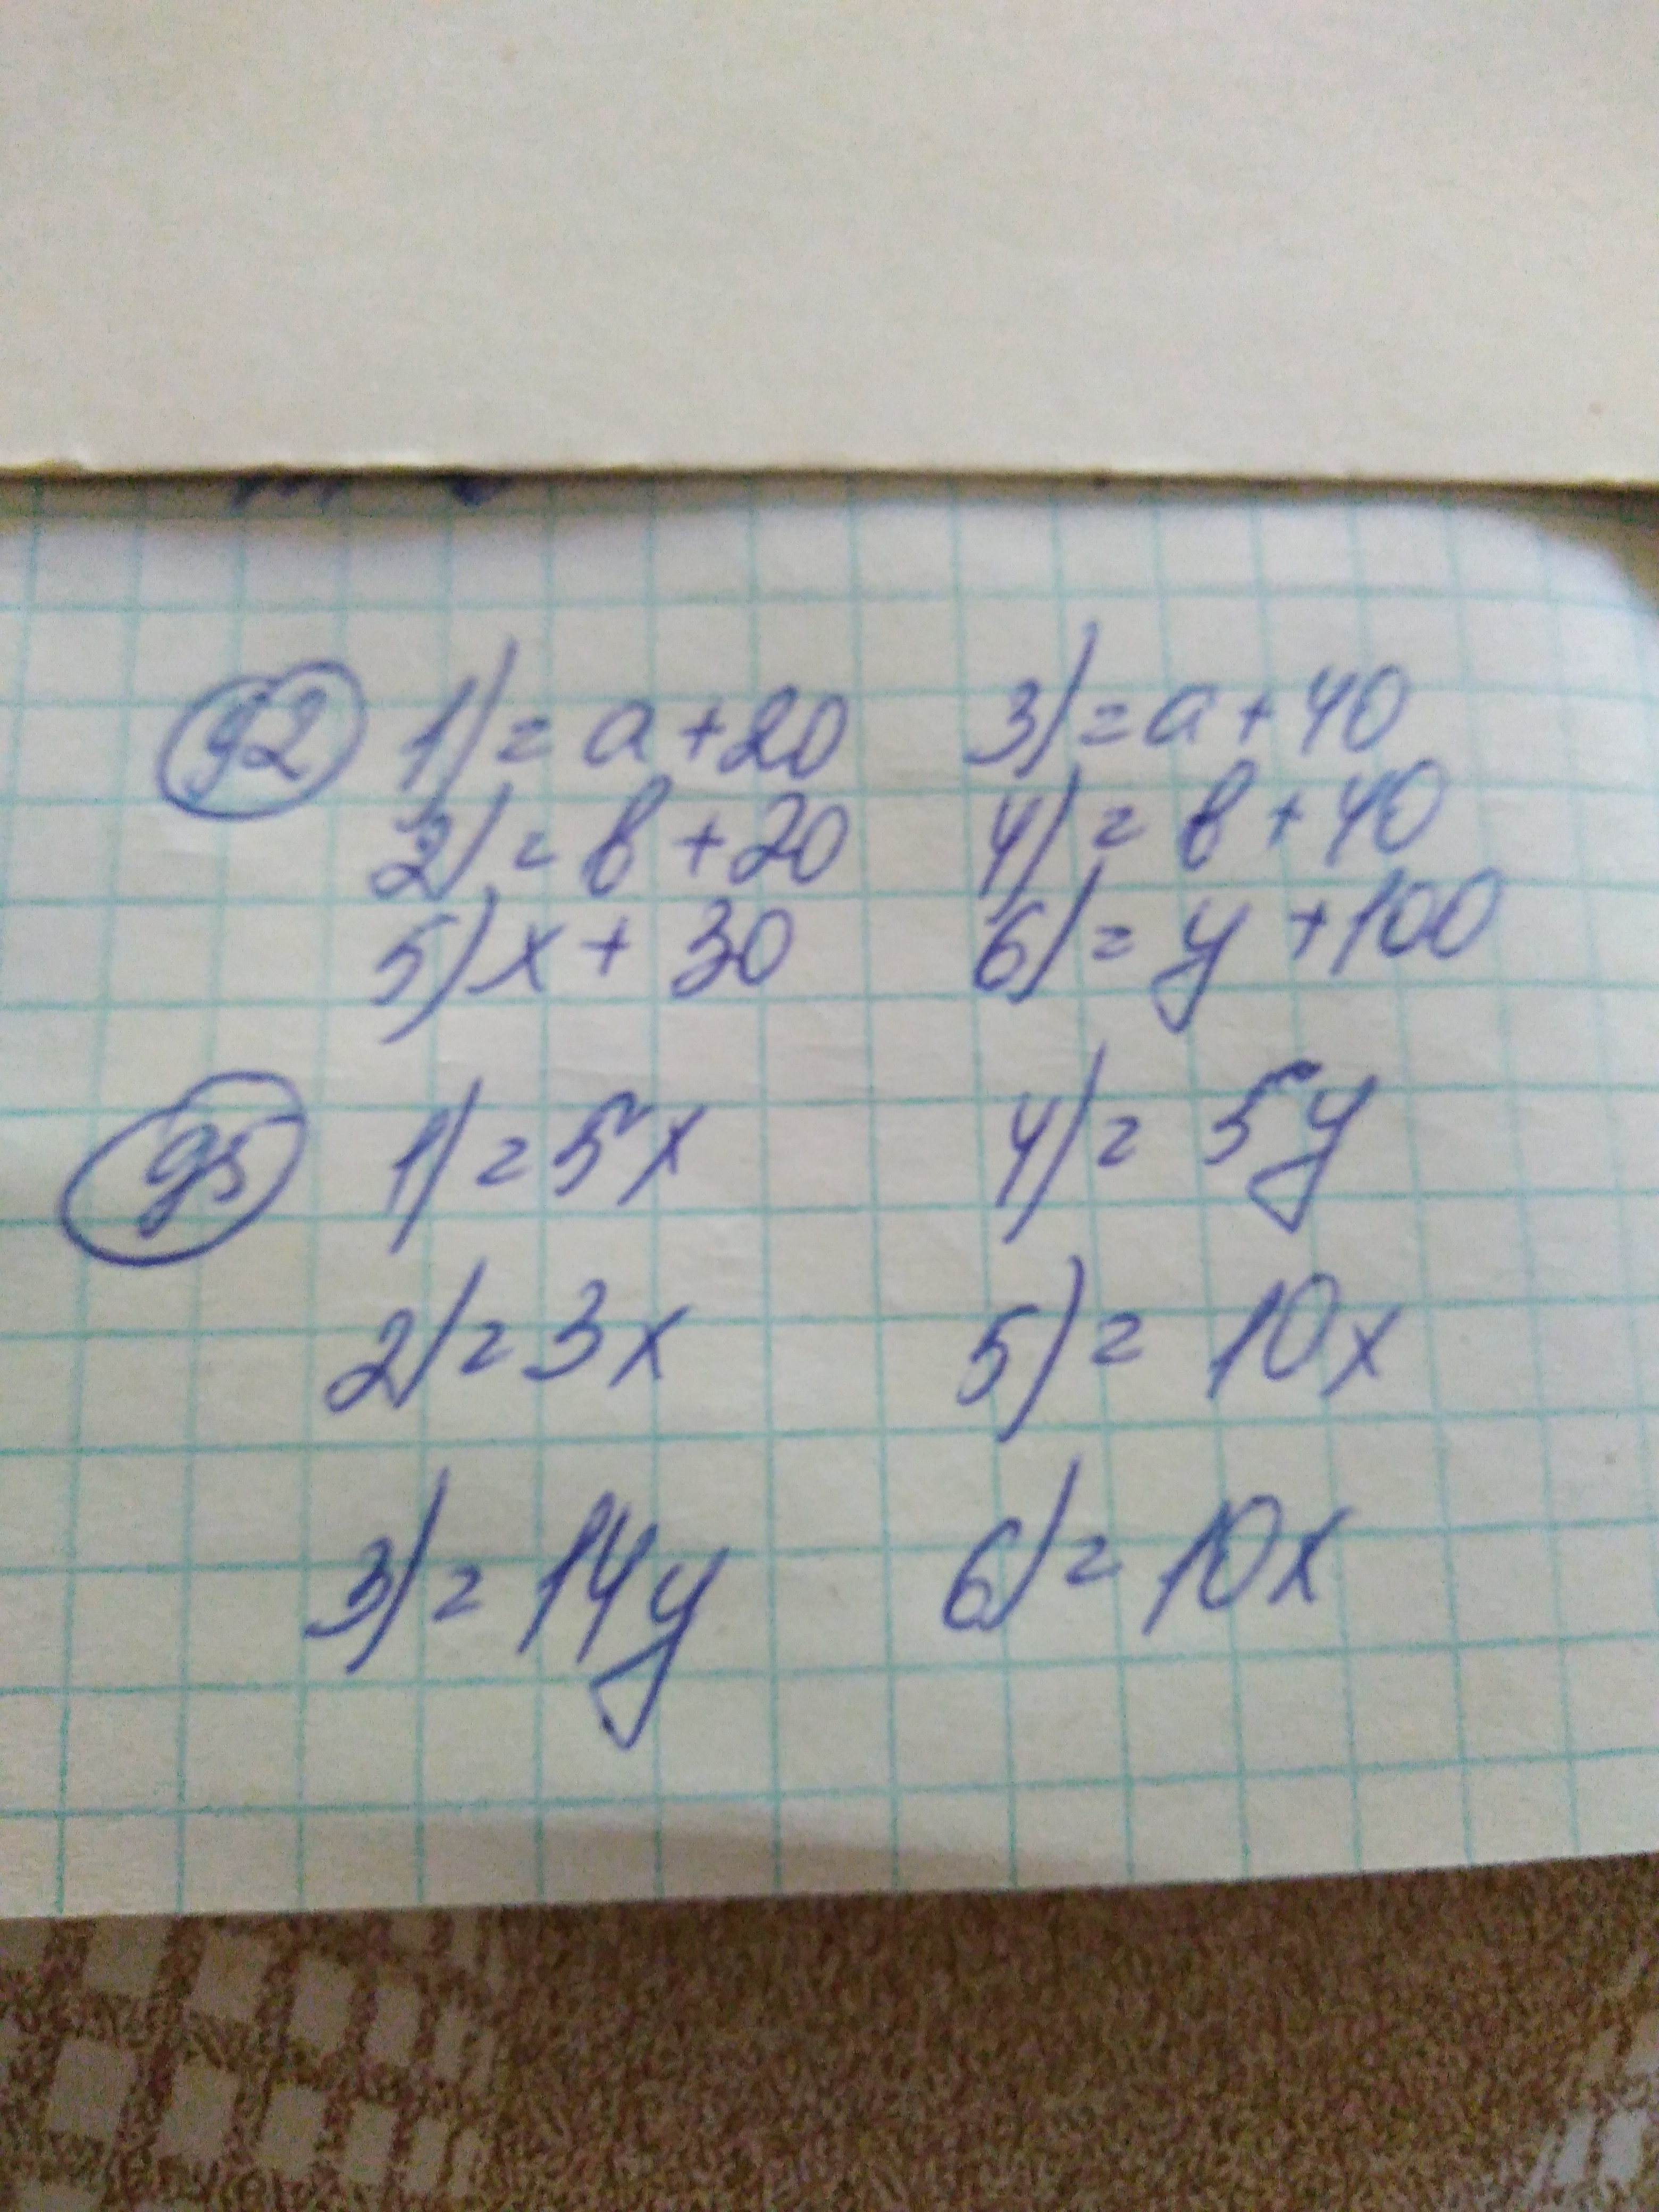 92 1) = a + 20 3) = a + 40
2) = в + 20 4) = в + 40
5) x + 30 6) = y + 100
95 1) = 5x 4) = 5y
2) = 3x 5) = 10x
3) = 14y 6) = 10x